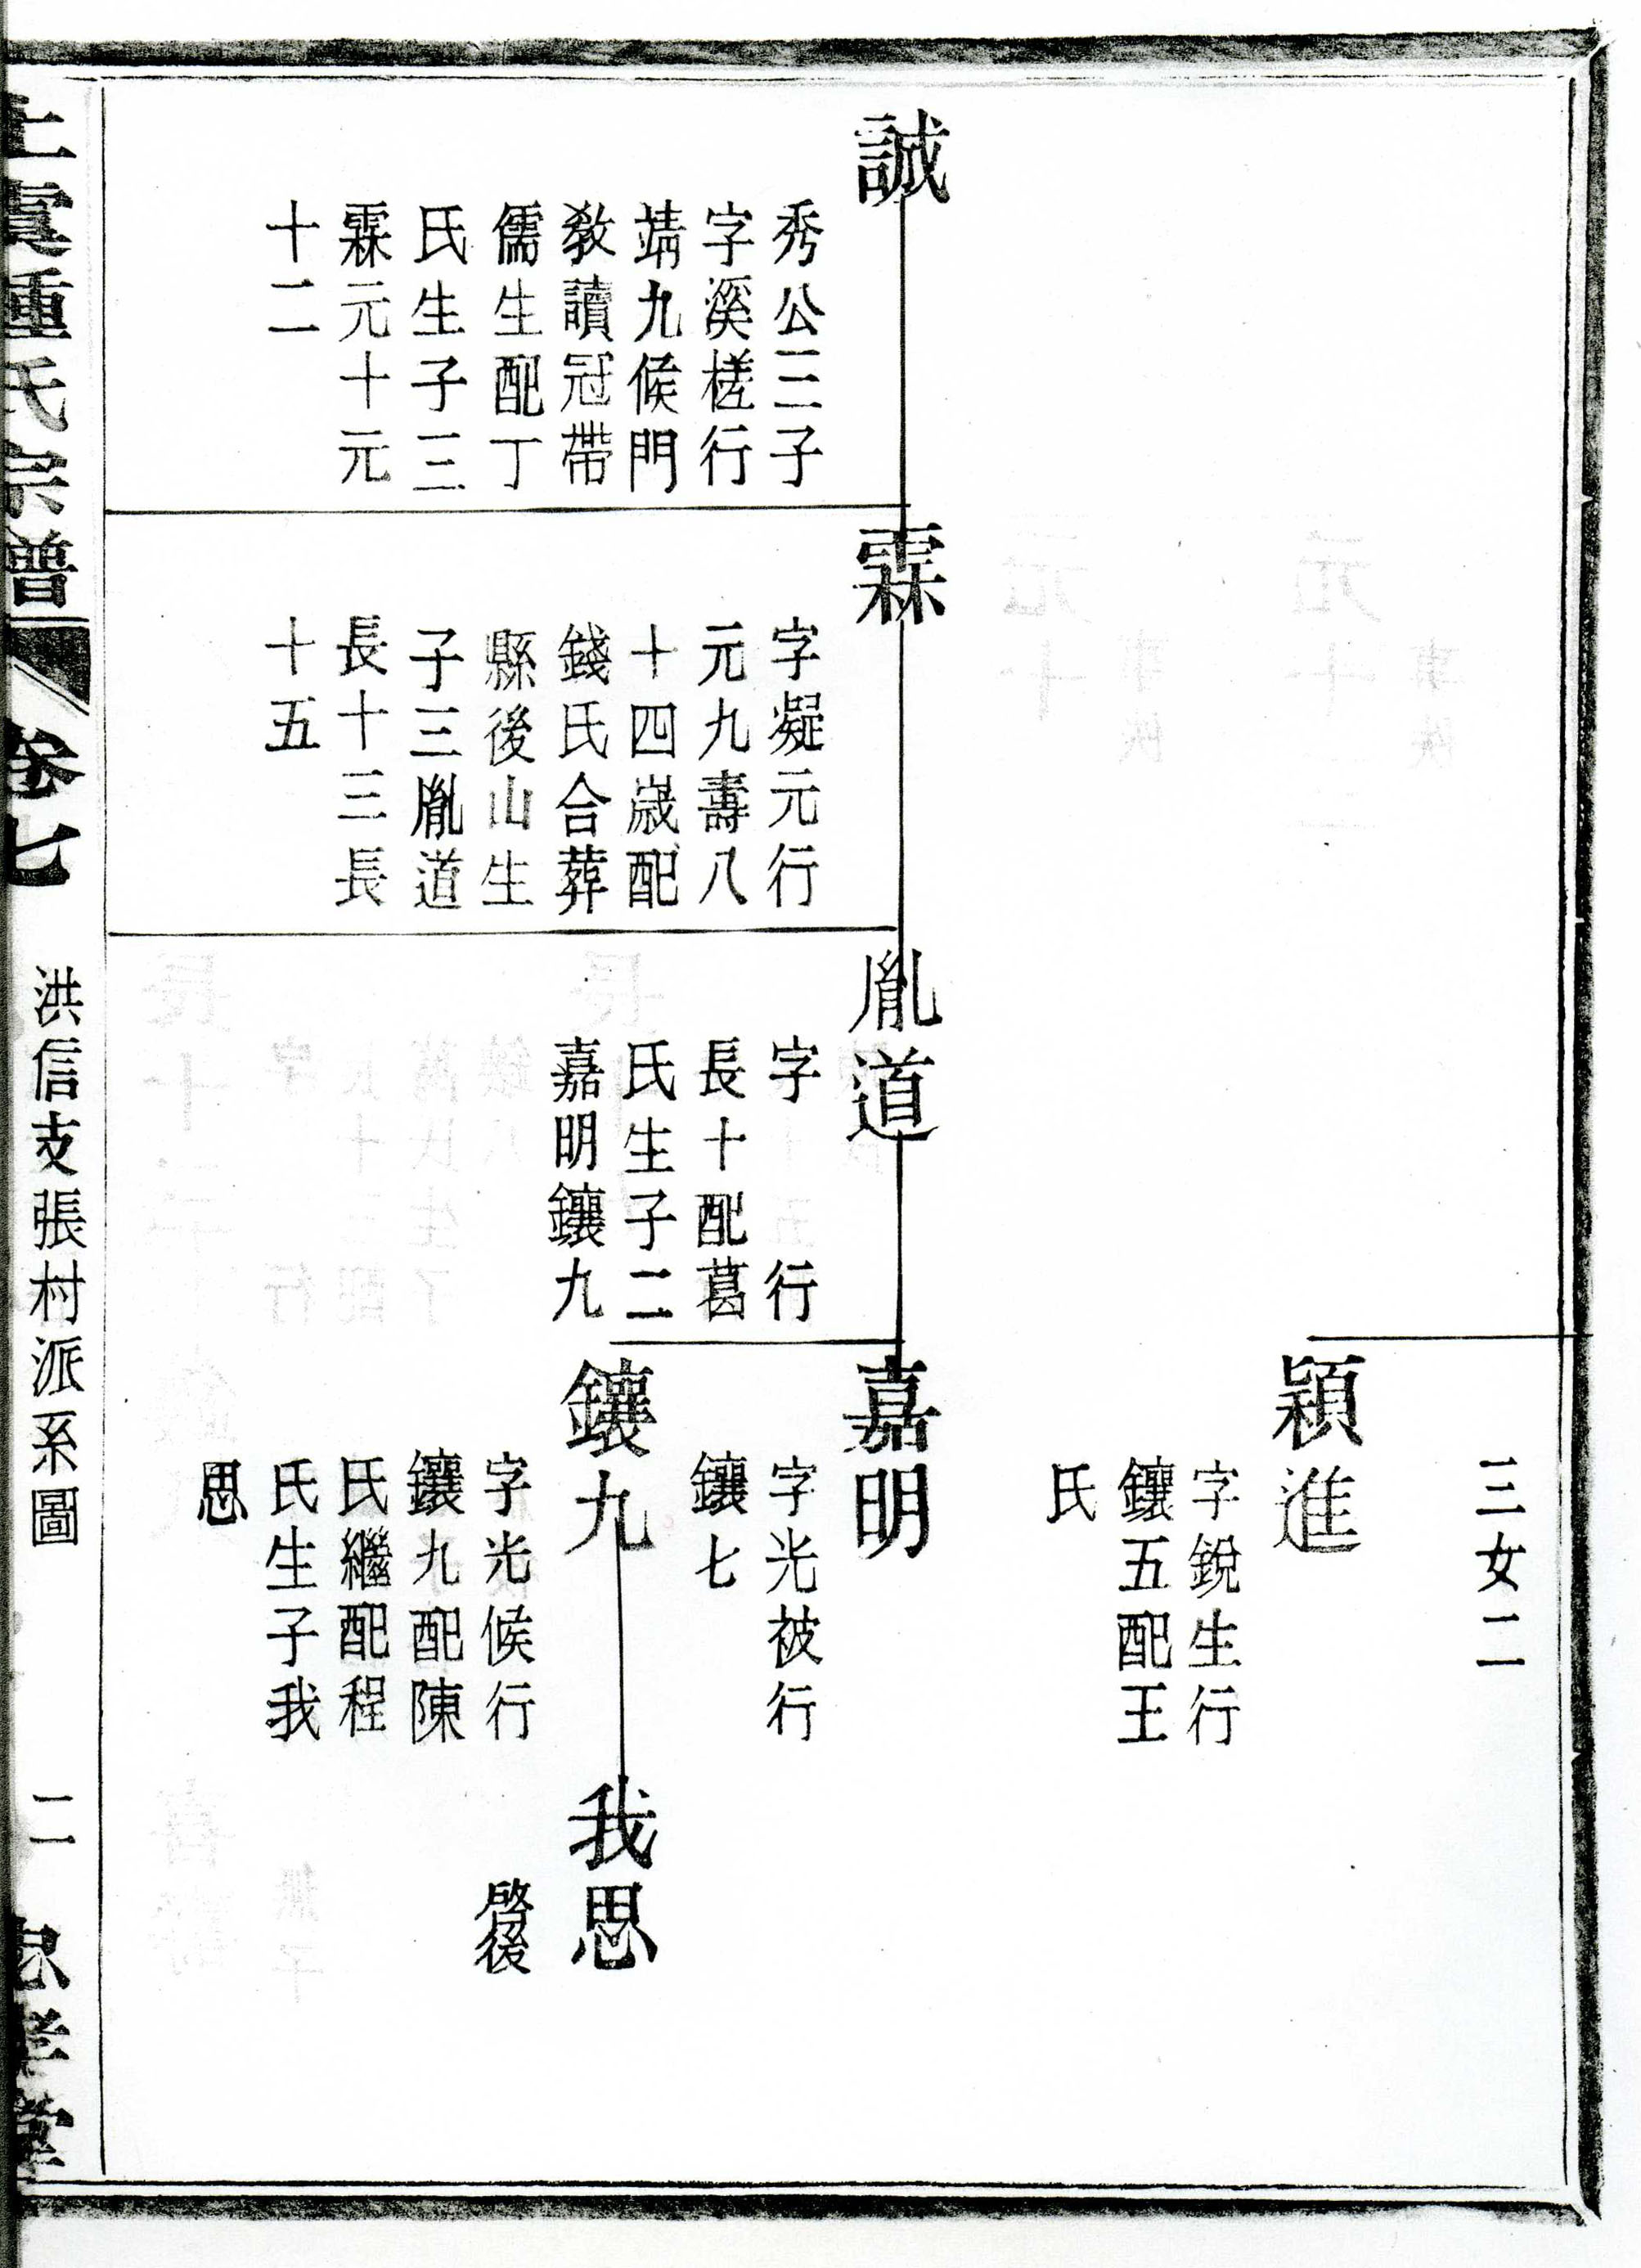 三女二
穎進
字銳生行
鑲五配王
氏
誠
秀公三子
字溪槎行
靖九候門
敎讀冠帶
儒生配丁
氏生子三
霖元十元
十二
霖
字凝元行
元九壽八
十四歲配
錢氏合葬
縣後山生
子三胤道
長十三長
十五
胤道
字　行
長十配葛
氏生子二
嘉明鑲九
嘉明
字光被行
鑲七
鑲九
字光候行
鑲九配陳
氏繼配程
氏生子我
思
我思
啓後
上虞鍾氏宗譜
卷七
洪信支張村派系圖
二
忠孝堂